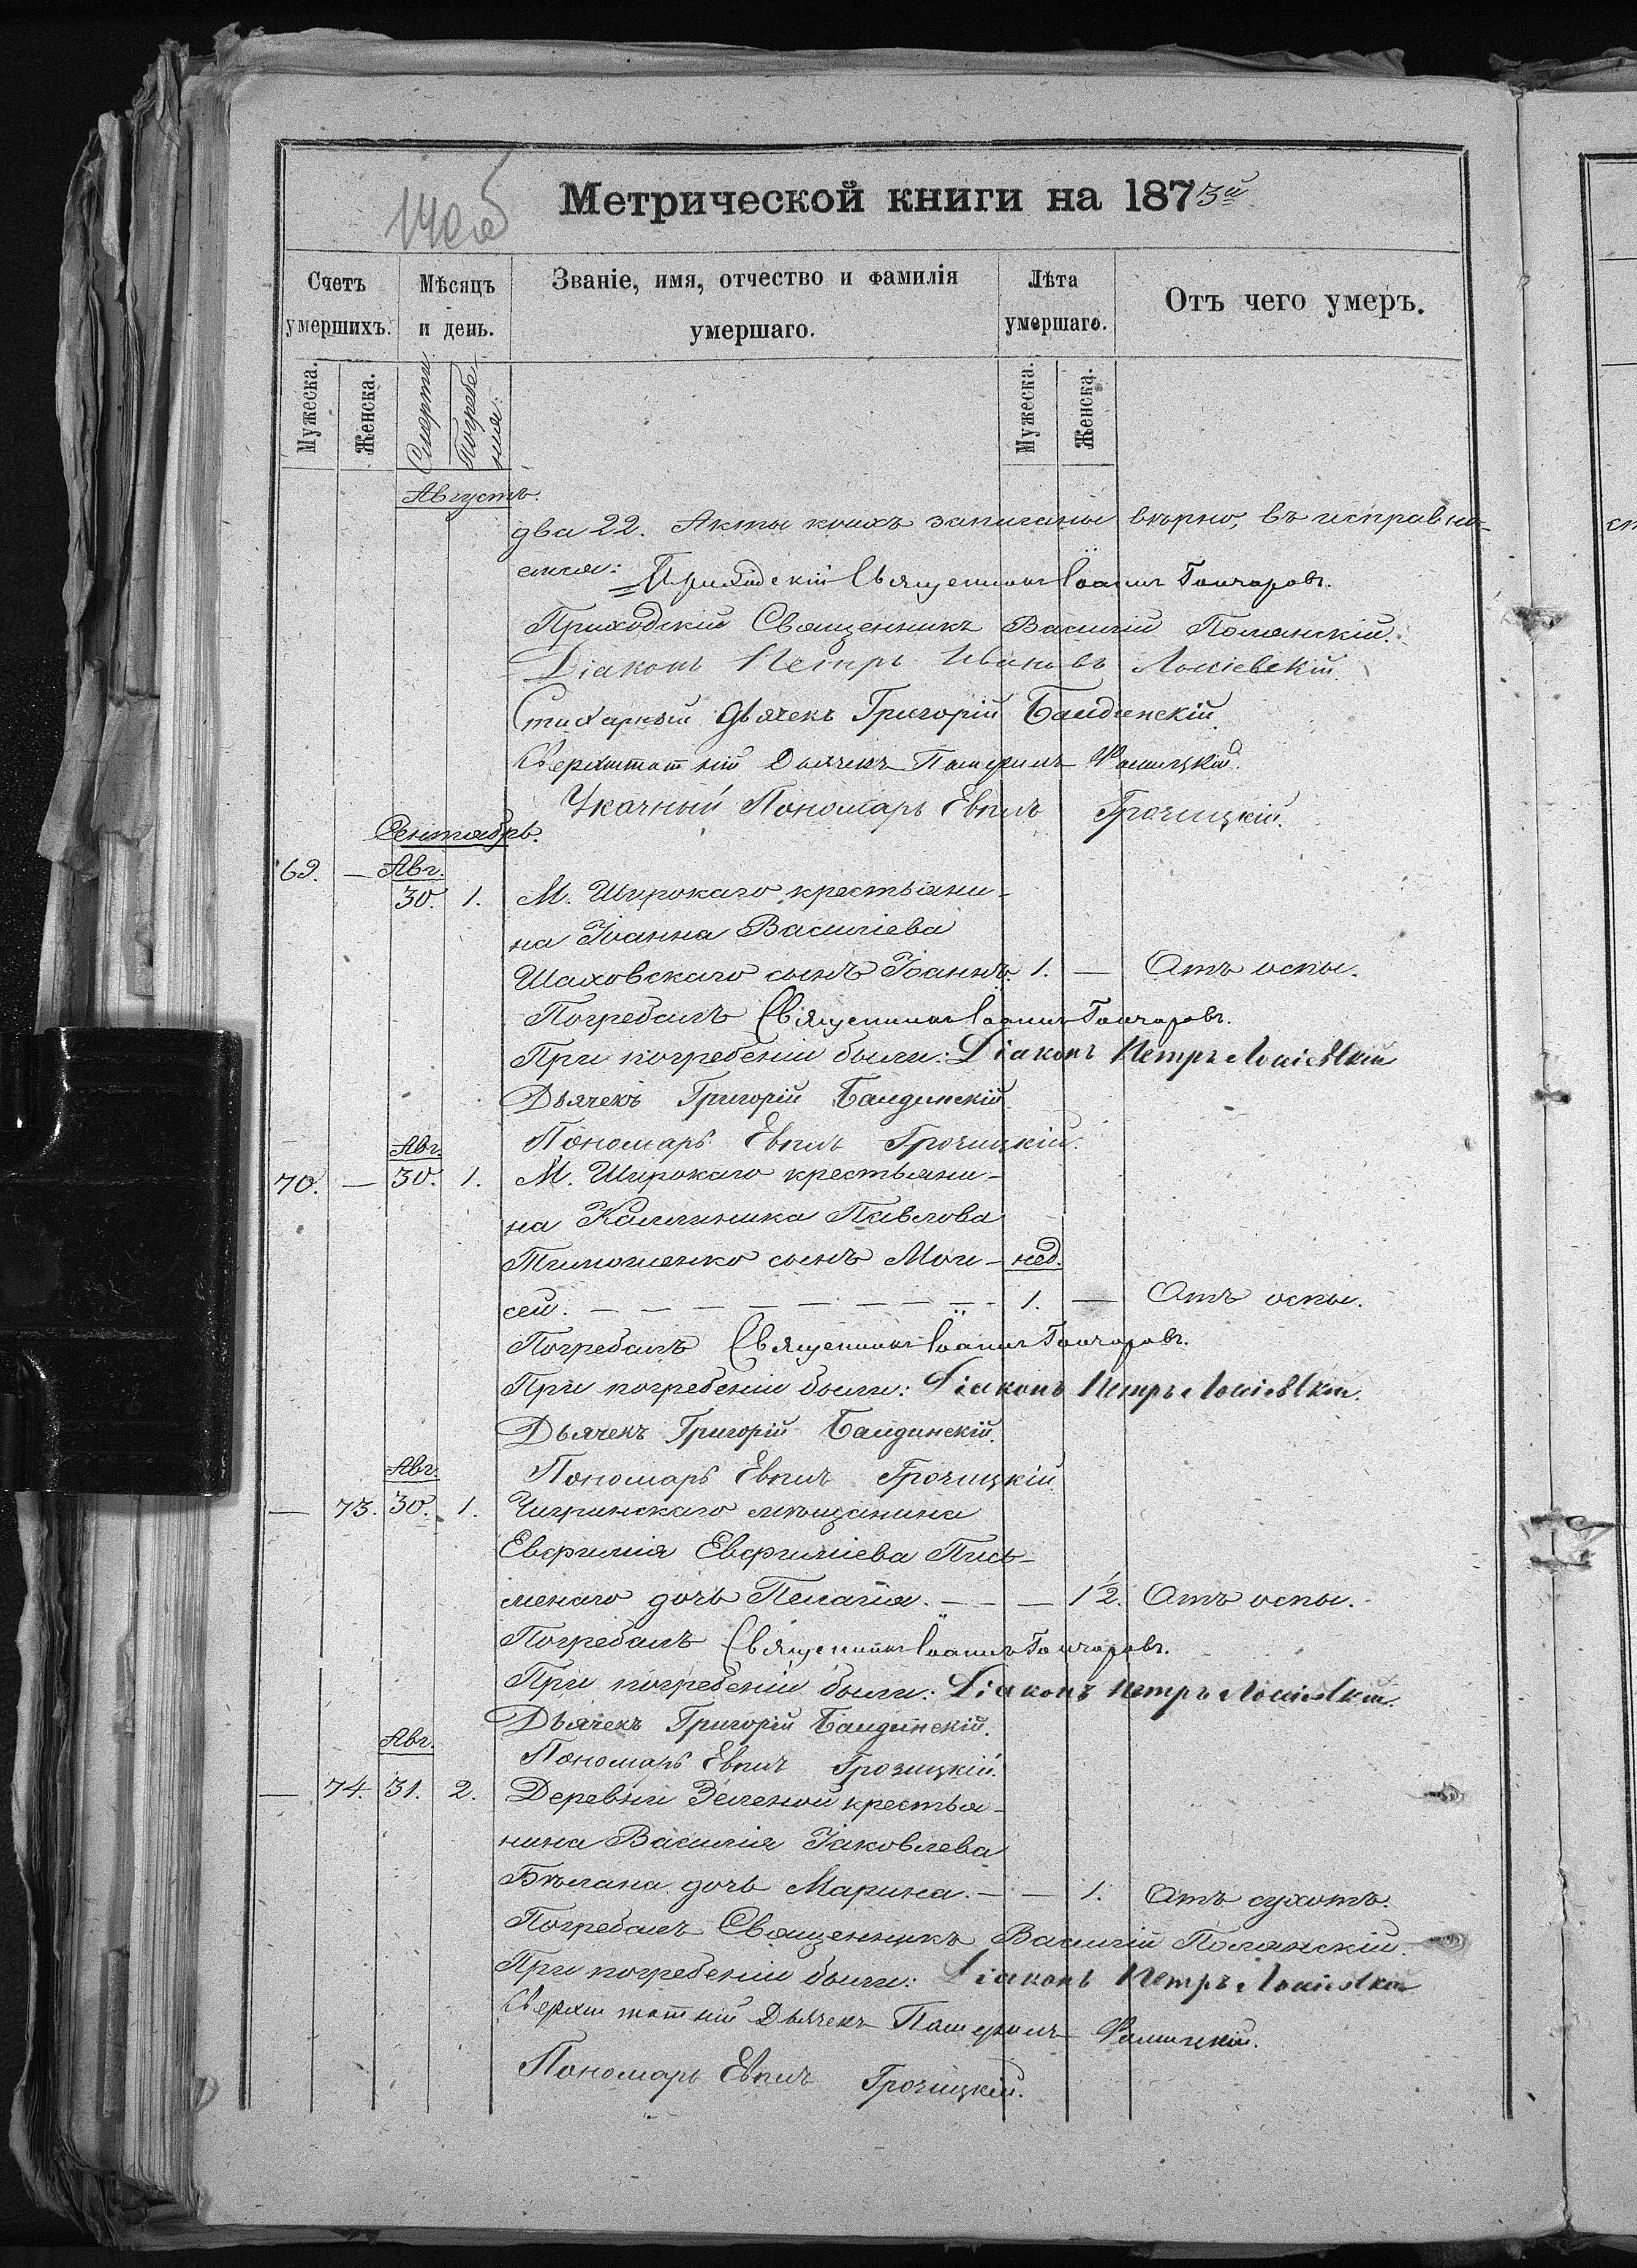 140об
Метрической книги на 1873й
Счетъ умершихъ.
Мѣсяцъ и день.
Званіе, имя, отчество и фамилія умершаго.
Лѣта умершаго.
Отъ чего умеръ.
Мужеска.
Женска.
Смерти
Погребенія.
Мужеска.
Женска.
Августъ.
два 22. Акты коихъ записаны вѣрно, въ исправно-
Приходскій Священникъ Іоаннъ Гончаровъ.
Приходскій Священникъ Василій Полянскій.
Діаконъ Петръ Ивановъ
Стихарный Дьячекъ Григорій
Сверхштатный Дьячекъ
Указный Пономарь Евпилъ
Сентябрь.
69. — Авг.
30. 1. М. Широкаго крестьяни-
на Іоанна Василіева
Шаховскаго сынъ Іоаннъ. 1. — Отъ оспы.
Погребалъ Священникъ Іоаннъ Гончаровъ.
При погребеніи были: Діаконъ Петръ
Дьячекъ Григорій
Пономарь Евпилъ
Авг.
70. — 30. 1. М. Широкаго крестьяни-
на Каллиника Павлова
Тимошенко сынъ Мои- нед.
сей. — — — — — — — — 1. — Отъ оспы.
Погребалъ Священникъ Іоаннъ Гончаровъ.
При погребеніи были: Діаконъ Петръ
Дьячекъ Григорій
Пономарь Евпилъ
Авг.
— 73. 30. 1. Чигринскаго мѣщанина
Евфимія Евфиміева Пись-
менаго дочь Пелагія. — — — 1½. Отъ оспы.
Погребалъ Священникъ Іоаннъ Гончаровъ.
При погребеніи были: Діаконъ Петръ
Дьячекъ Григорій
Авг.
Пономарь Евпилъ
— 74. 31. 2. Деревни Зеленой крестья-
нина Василія Іаковлева
Бѣлана дочь Марина. — — 1. Отъ сухотъ.
Погребалъ Священникъ Василій Полянскій.
При погребеніи были: Діаконъ Петръ
Сверхштатный Дьячекъ
Пономарь Евпилъ